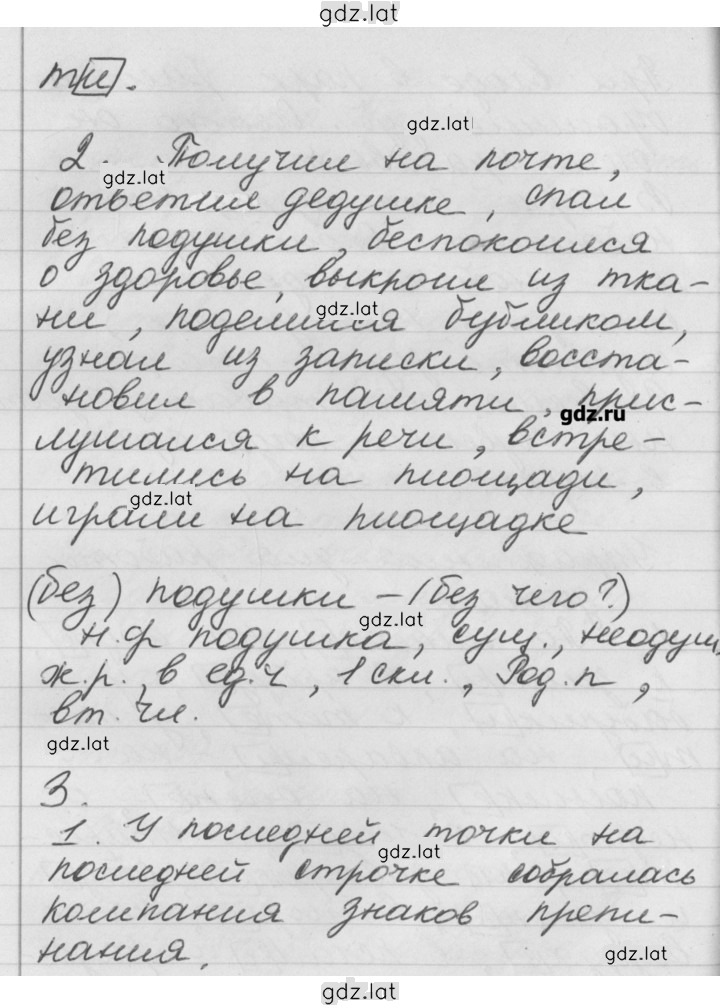 gdz.lat
ти.
gdz.lat
2. Получил на почте,
gdz.lat
ответил дедушке, спал
без подушки, беспокоился
о здоровье, выкроил из тка-
gdz.lat
ни, поделился бубликом,
узнал из записки, восста-
новил в памяти, прис-
gdz.ru
лушался к речи, встре-
тились на площади,
gdz.lat
играли на площадке
(без) подушки – (без чего?)
gdz.lat
н.ф подушка, сущ., неодуш,
ж.р., в ед.ч, 1 скл., Род.п,
вт. чл.
gdz.lat
3.
1. У последней точки на
gdz.lat
последней строчке собралась
компания знаков препи-
нания.
gdz.lat
gdz.lat